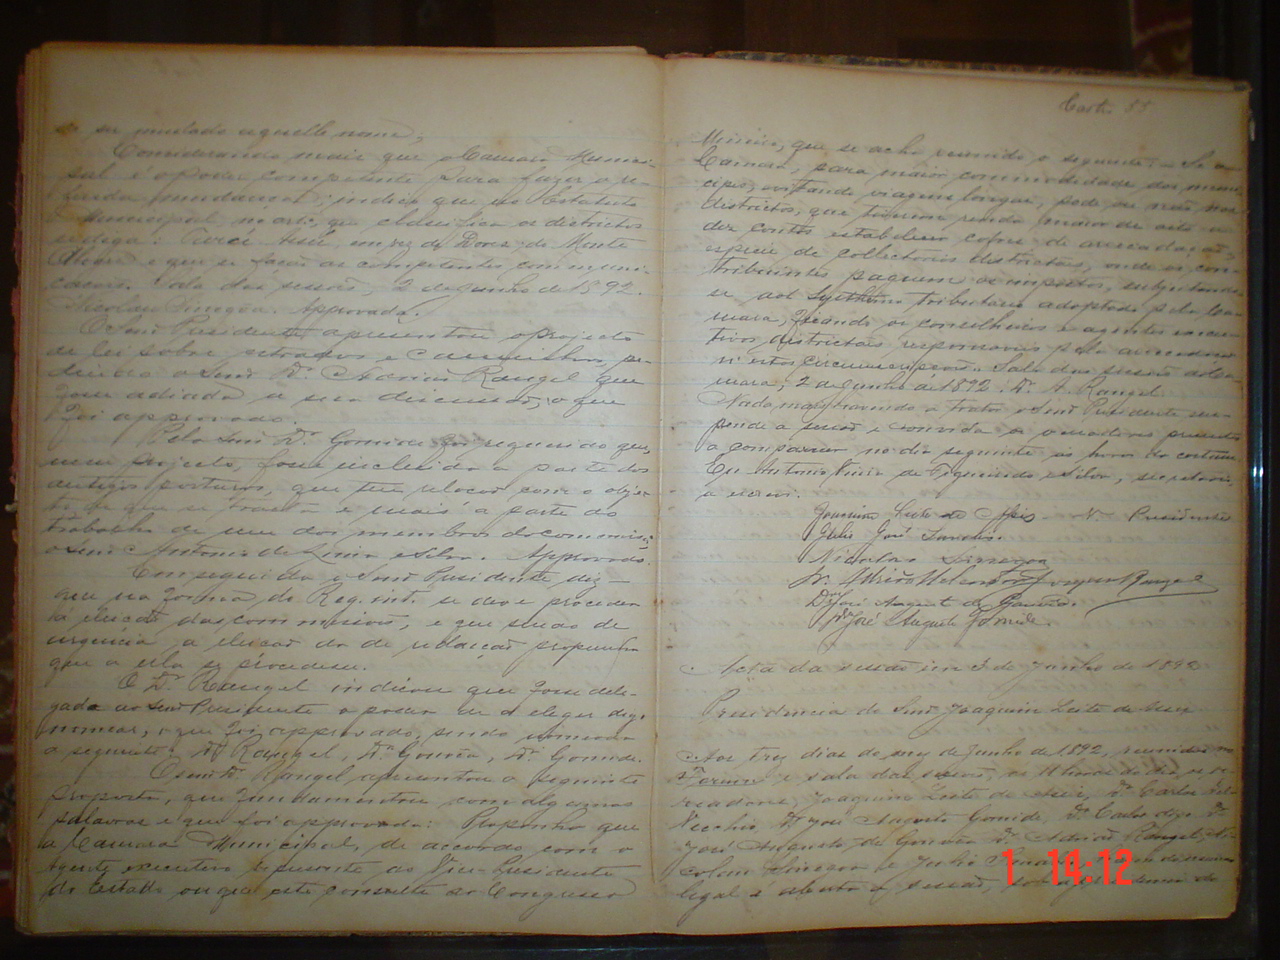 ser mudado aquelle nome;
Considerando mais que a Camara Munici-
pal é o poder competente para fazer a re-
ferida mudança; indico que nos Estatuto
Municipal no art. que classifica os districtos
se diga: em vez de Dores de Monte
Alegre e que se façaõ as competentes communi-
cações. Sala das sessões, 2 de Junho de 1892.
Nicolau Approvada.
O Senr Presidente apresentou o projecto
de lei sobre estradas e caminhos, pe-
dindo o Senr Dr. Adriaõ Rangel que
fosse adiada a sua discussaõ, o que
foi approvado.
Pelo Senr Dr. Gomide foi requerido que,
nesse projecto, fosse incluida a parte das
antigas posturas, que tem relaçaõ com o obje-
to de que se tracta e mais a parte do
trabalho de um dos membros da commissaõ,
o Senr Antonio de e Silva. Approvado.
Em seguida o Senr Presidente diz
que na forma do Reg. int. se deve proceder
á eleiçaõ das commissões, e que sendo de
urgencia a eleiçaõ da de redacçaõ propunha
que a ella se procedesse.
O Dr. Rangel indicou que fosse dele-
gado ao Senr Presidente o poder de eleger digo
nomear, o que foi approvado, sendo nomeada
a seguinte: Dr Rangel, Dr. Gouvêa, Dr. Gomide.
O Senr Dr. Rangel apresentou a seguinte
proposta, que fundamentou com algumas
palavras e que foi approvada: Proponho que
a Camara Municipal, de accordo com o
Agente executivo represente ao Vice-Presidente
do Estado ou que este consulte ao Congresso
55
Mineiro, que se acha reunido o seguinte: – Se a
Camara, para maior commodidade dos muni-
cipes, evitando viagens longas, pode ou naõ nos
districtos, que tiverem renda maior de
dez contos estabelecer cofres de arrecadaçaõ,
especie de collectorias districtaes, onde os con-
tribuintes paguem os impostos, sujeitando-
se ao systhema tributario adoptado pela Ca-
mara, ficando os conselheiros e agentes execu-
tivos districtaes responsaveis pela arrecadaçaõ
n'estas circumscripções. Sala das sessões da Ca-
mara, 2 de Junho de 1892. Dr. A. Rangel.
Nada mais havendo a tratar o Senr Presidente sus-
pende a sessaõ e convida os vereadores presentes
a comparecer no dia seguinte ás horas do costume.
Eu Antonio de Figueiredo e Silva, secretario
a escrevi.
Joaquim Leite de Assis V. Presidente
Julio José
Nicolau
Dr. Adriaõ Rangel
Dor José August de Gouvêa
Dr José Augusto Gomide.
Acta da sessaõ em 3 de Junho de 1892
Presidencia do Senr Joaquim Leite de Assis
Aos tres dias do mez de Junho de 1892, reunidos no
e sala das sessões, ás 11 horas do dia, os ve-
readores, Joaquim Leite de Assis, Dr. Carlos Del-
Vecchio, Dr. José Augusto Gomide, Dr. Carlos digo Dr.
José Augusto de Gouvêa Dr. Adriaõ Rangel, Ni-
colau e Julio
legal é aberta a sessaõ, sob a presidencia do
1 14:12